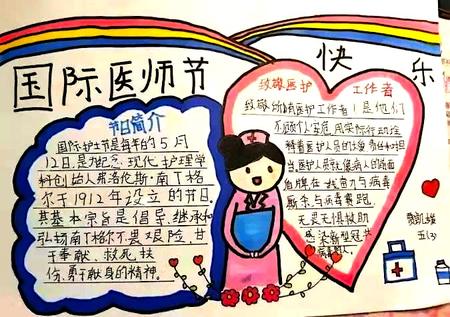 国际医师节
快乐
节日简介
国际护士节是每年的5月
12日,是为纪念现代护理学
科创始人弗洛伦斯·南丁格
尔于1912年设立的节日.
其基本宗旨是倡导、继承和
弘扬南丁格尔不畏艰险、甘
于奉献、救死扶
伤、勇于献身的精神。
致敬医护工作者
致敬 医护工作者!是他们
不顾个人安危,用实际行动诠
释着医护人员的
当,医护人员就 病人的
与病毒
厮杀、与病毒赛跑.
无灵无惧救助
感染新型冠
五(3)